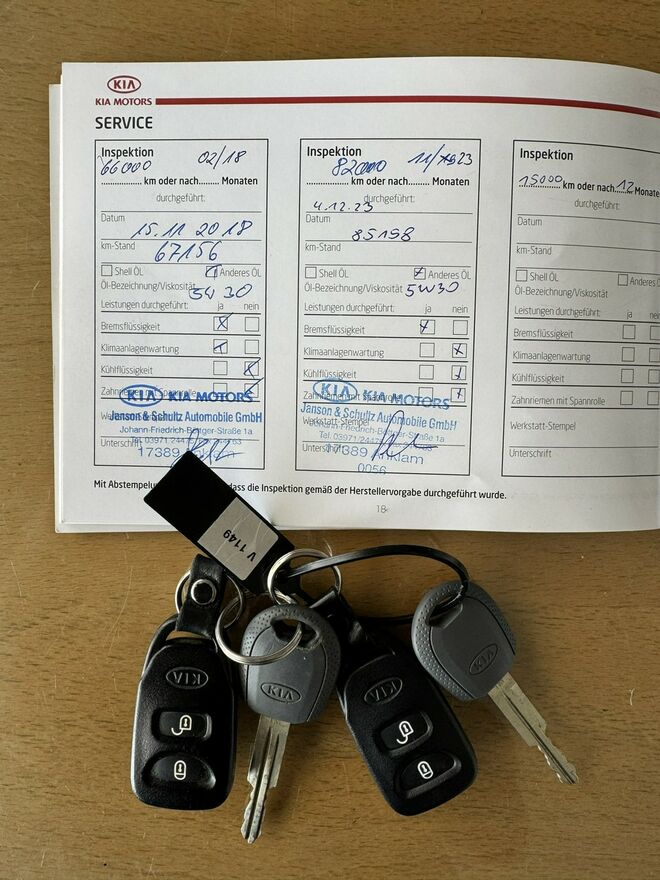 KIA
KIA MOTORS
SERVICE
Inspektion
66000 02/18
km oder nach Monaten
durchgeführt:
Datum
15.11 2018
km-Stand
67156
Shell ÖL Anderes ÖL
Öl-Bezeichnung/Viskosität
5W30
Leistungen durchgeführt: ja nein
Bremsflüssigkeit
Klimaanlagenwartung
Kühlflüssigkeit
Zahnriemen mit Spannrolle
KIA KIA MOTORS
Janson & Schultz Automobile GmbH
Johann-Friedrich-Böttger-Straße 1a
17389 Anklam
Unterschrift
Inspektion
82000
km oder nach Monaten
durchgeführt:
4.12.23
Datum
85198
km-Stand
Shell ÖL Anderes ÖL
Öl-Bezeichnung/Viskosität
5W30
Leistungen durchgeführt: ja nein
Bremsflüssigkeit
Klimaanlagenwartung
Kühlflüssigkeit
Zahnriemen mit Spannrolle
KIA KIA MOTORS
Janson & Schultz Automobile GmbH
Werkstatt-Stempel
Johann-Friedrich-Böttger-Straße 1a
17389 Anklam
0056
Inspektion
15000 km oder nach 12 Monaten
durchgeführt:
Datum
km-Stand
Shell ÖL Anderes ÖL
Öl-Bezeichnung/Viskosität
Leistungen durchgeführt: ja
Bremsflüssigkeit
Klimaanlagenwartung
Kühlflüssigkeit
Zahnriemen mit Spannrolle
Werkstatt-Stempel
Unterschrift
Mit dass die Inspektion gemäß der Herstellervorgabe durchgeführt wurde.
18
V 1149
KIA
KIA
KIA
KIA